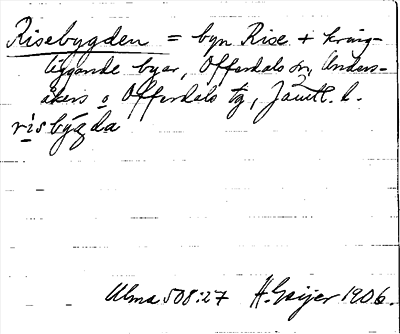 Risebygden = byn Rise + kring-
liggande byar, Offerdals sn, Unders-
åkers o Offerdals tg, Jämtl. l.
risbýgda
Ulma 508:27 H. Geijer 1906.